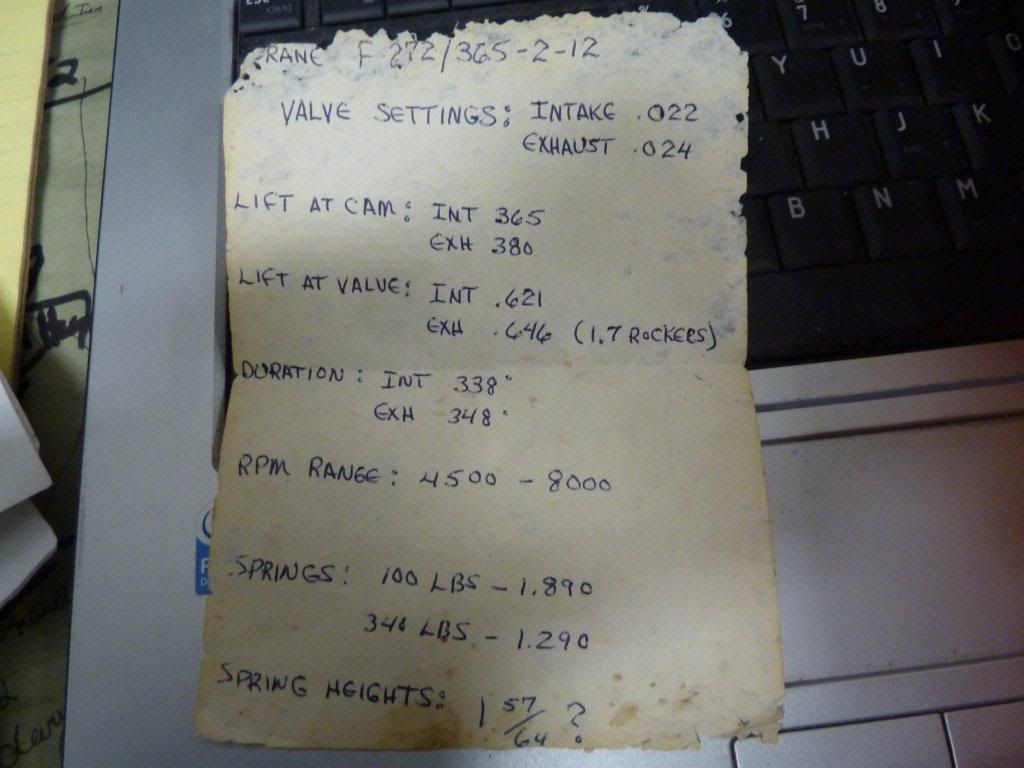 CRANE F 272/365-2-12
VALVE SETTINGS: INTAKE .022
EXHAUST .024
LIFT AT CAM: INT 365
EXH 380
LIFT AT VALVE: INT .621
EXH .646 (1.7 ROCKERS)
DURATION: INT 338°
EXH 348°
RPM RANGE: 4500 - 8000
SPRINGS: 100 LBS - 1.890
346 LBS - 1.290
SPRING HEIGHTS: 1 57/64 ?
6
7
8
Y
U
I
O
H
J
K
B
N
M